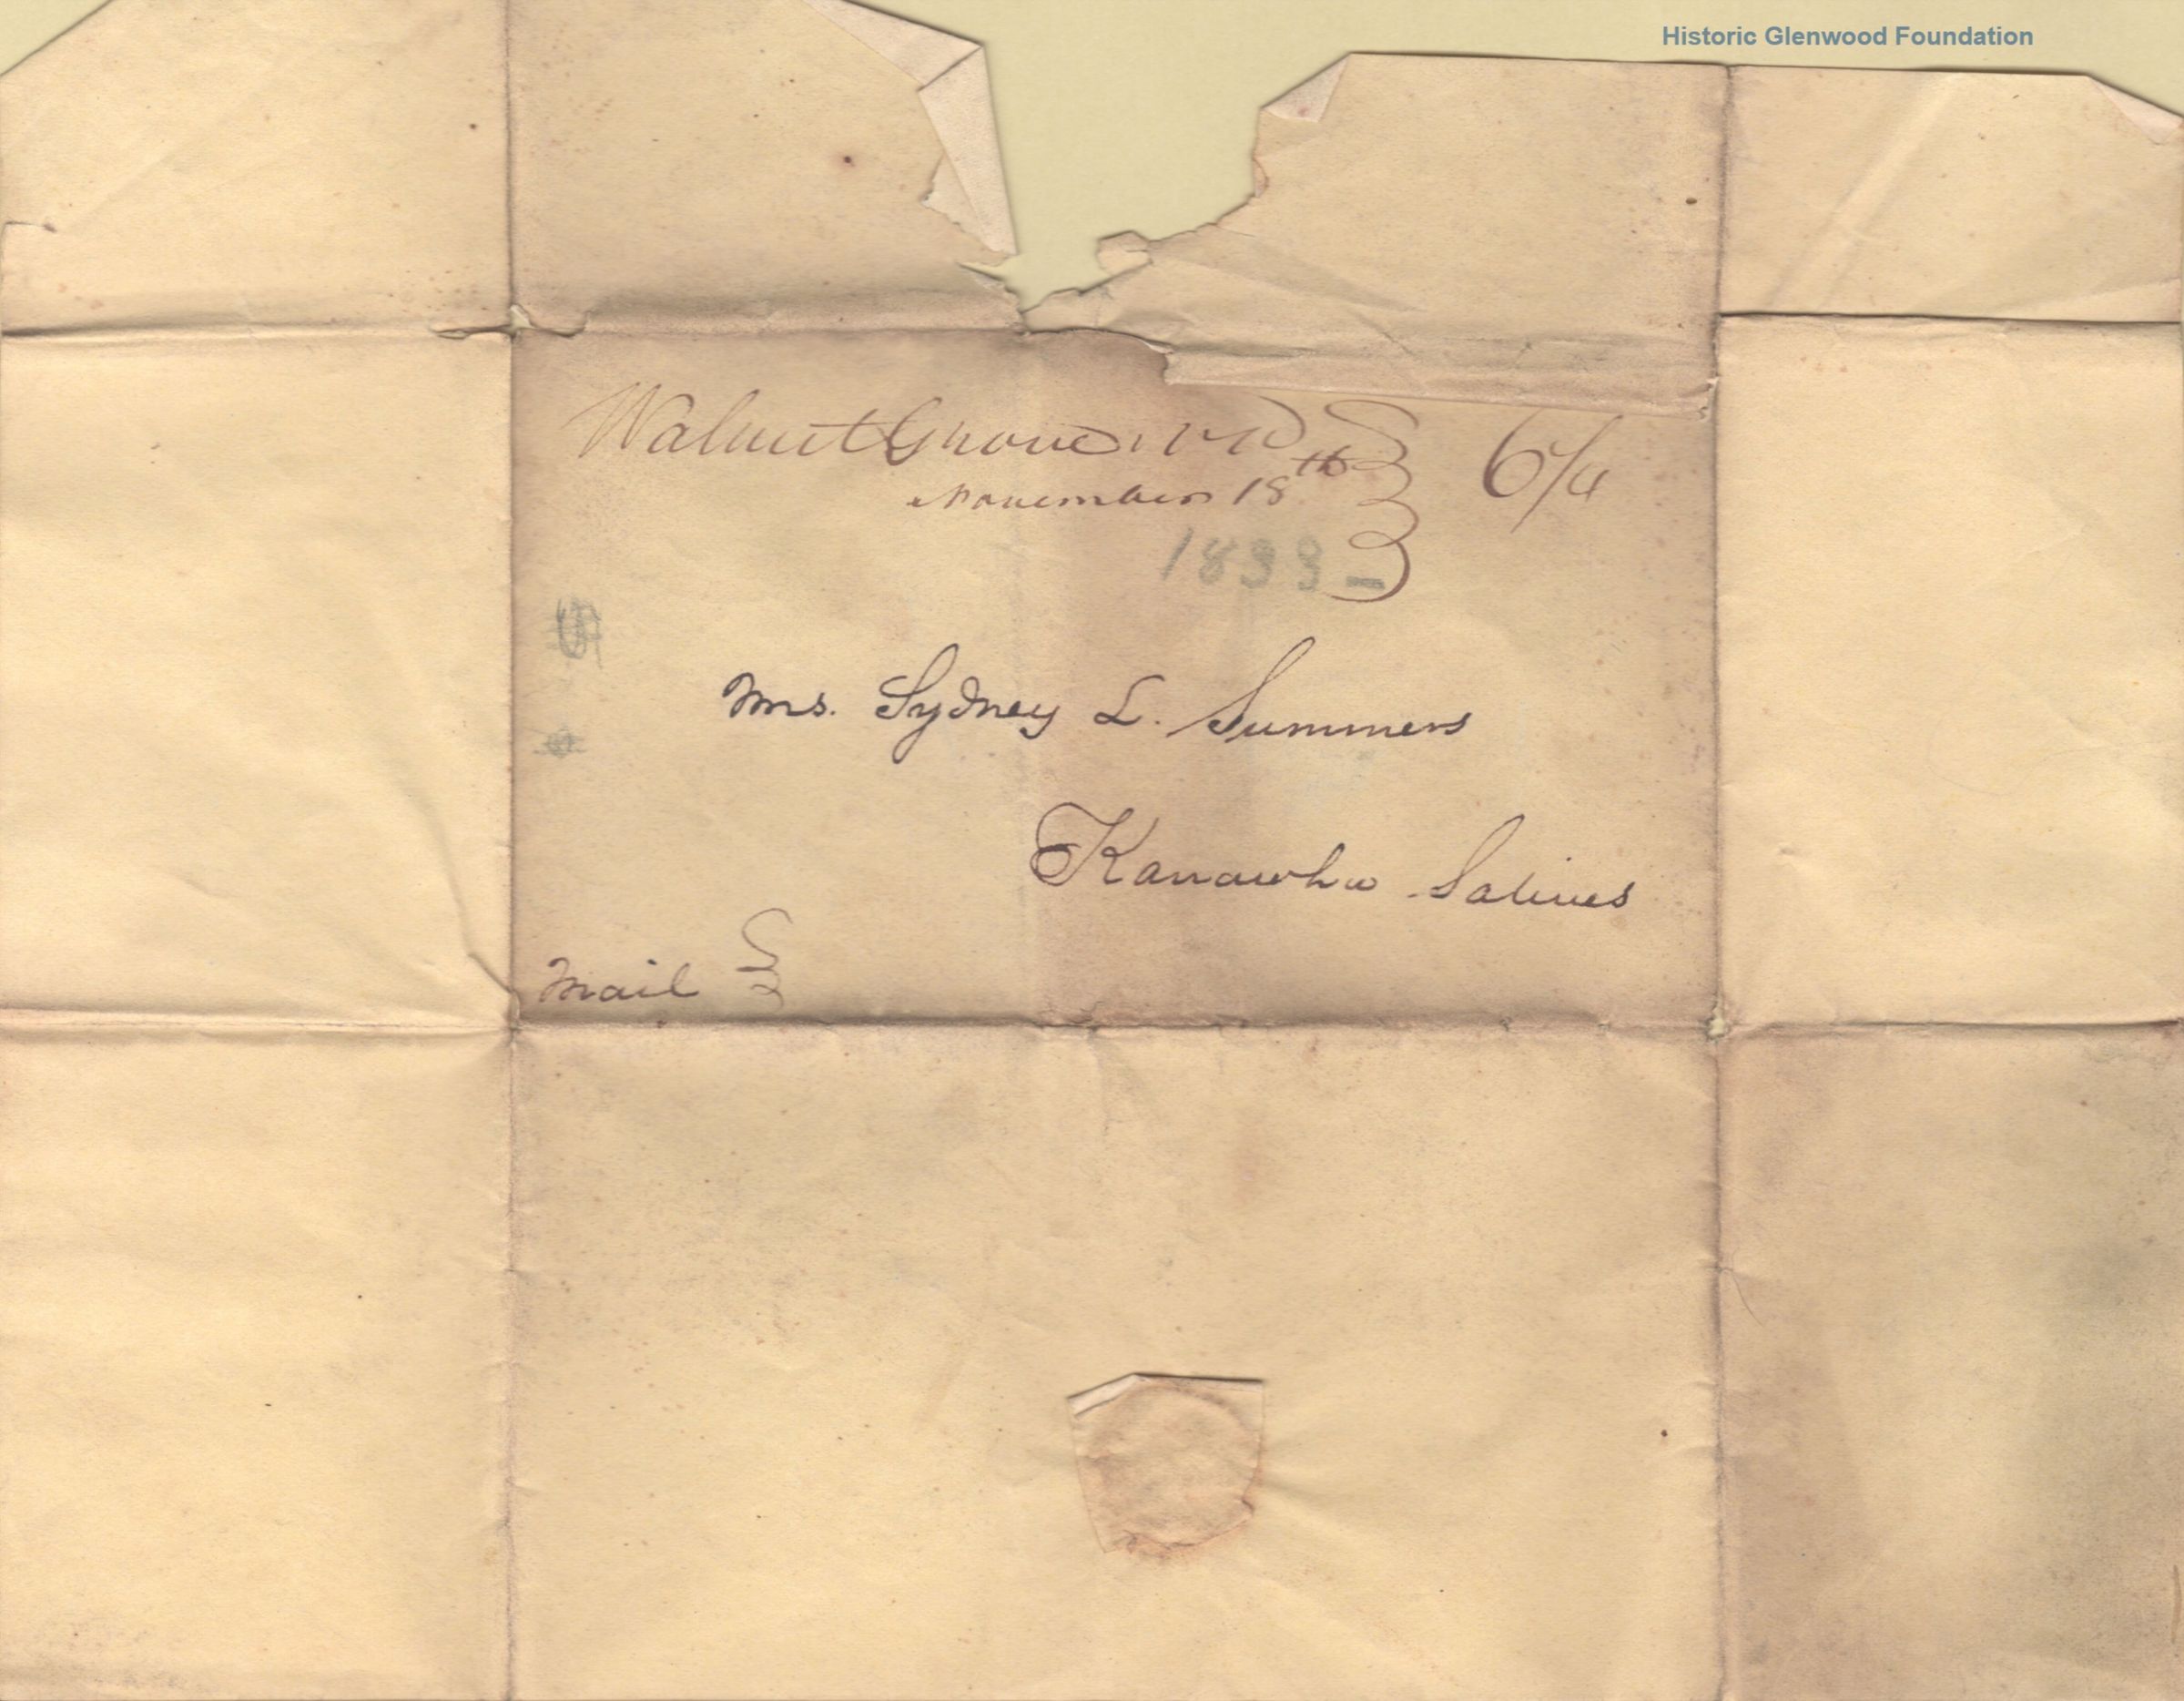 Historic Glenwood Foundation
Walnut Grove 6/4
November 18th
1833 -
Mrs. Sydney L. Summers
Kanawha Salines
Mail